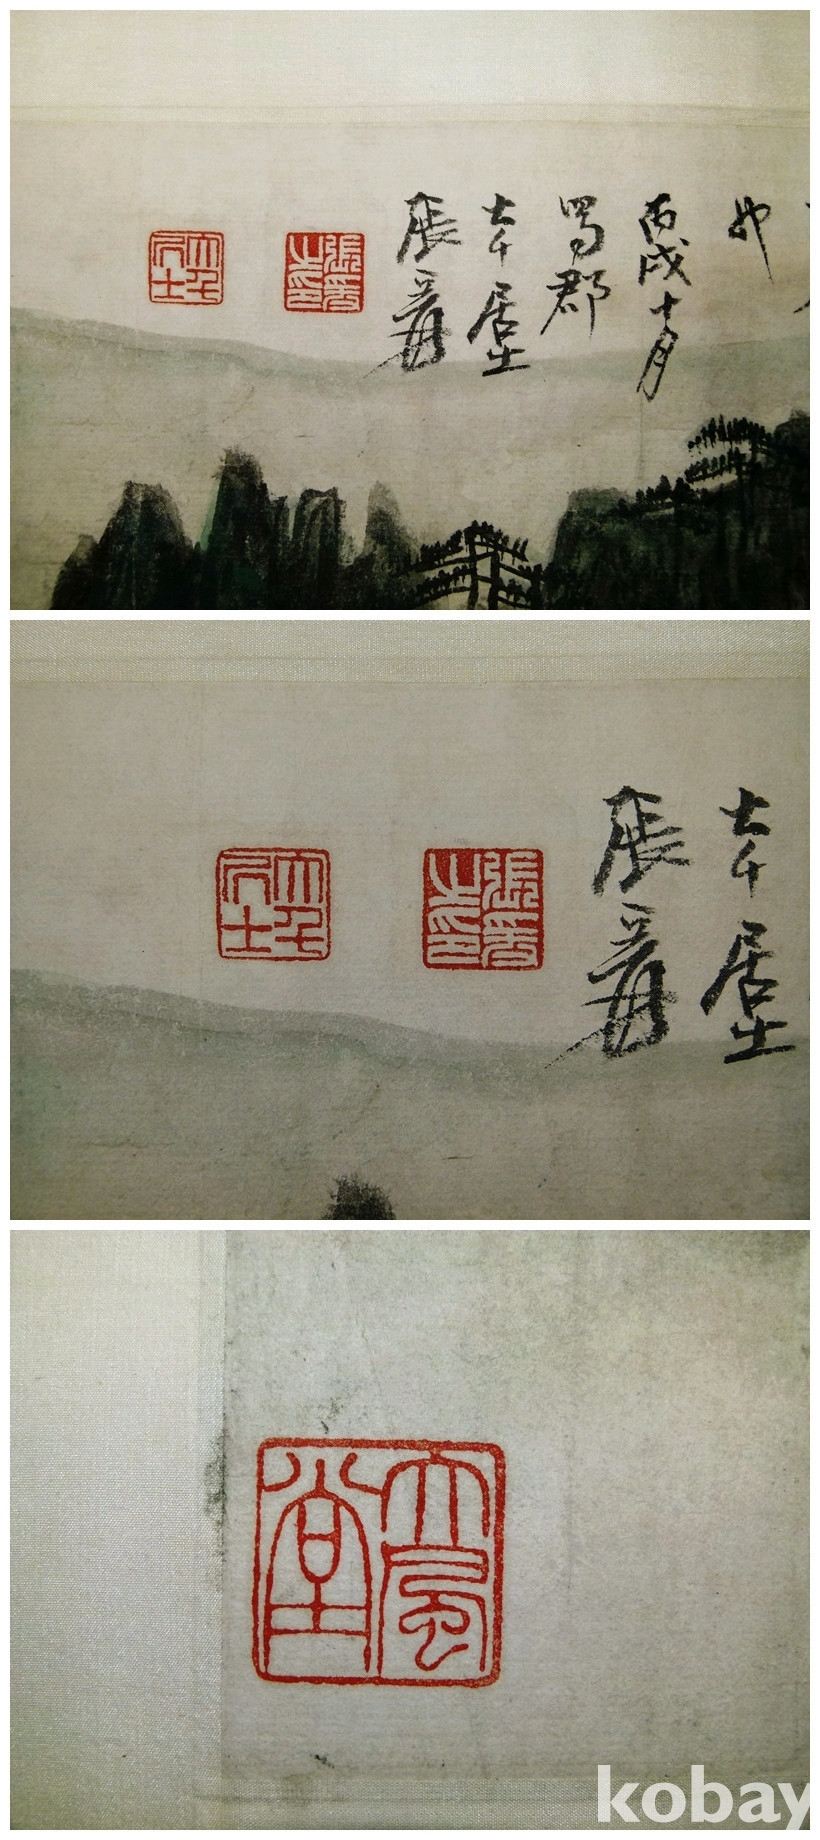 也
丙戌十月
蜀郡
大千居士
張爰
張爰之印
大千居士
大千居士
張爰
張爰之印
大千居士
大風堂
kobay